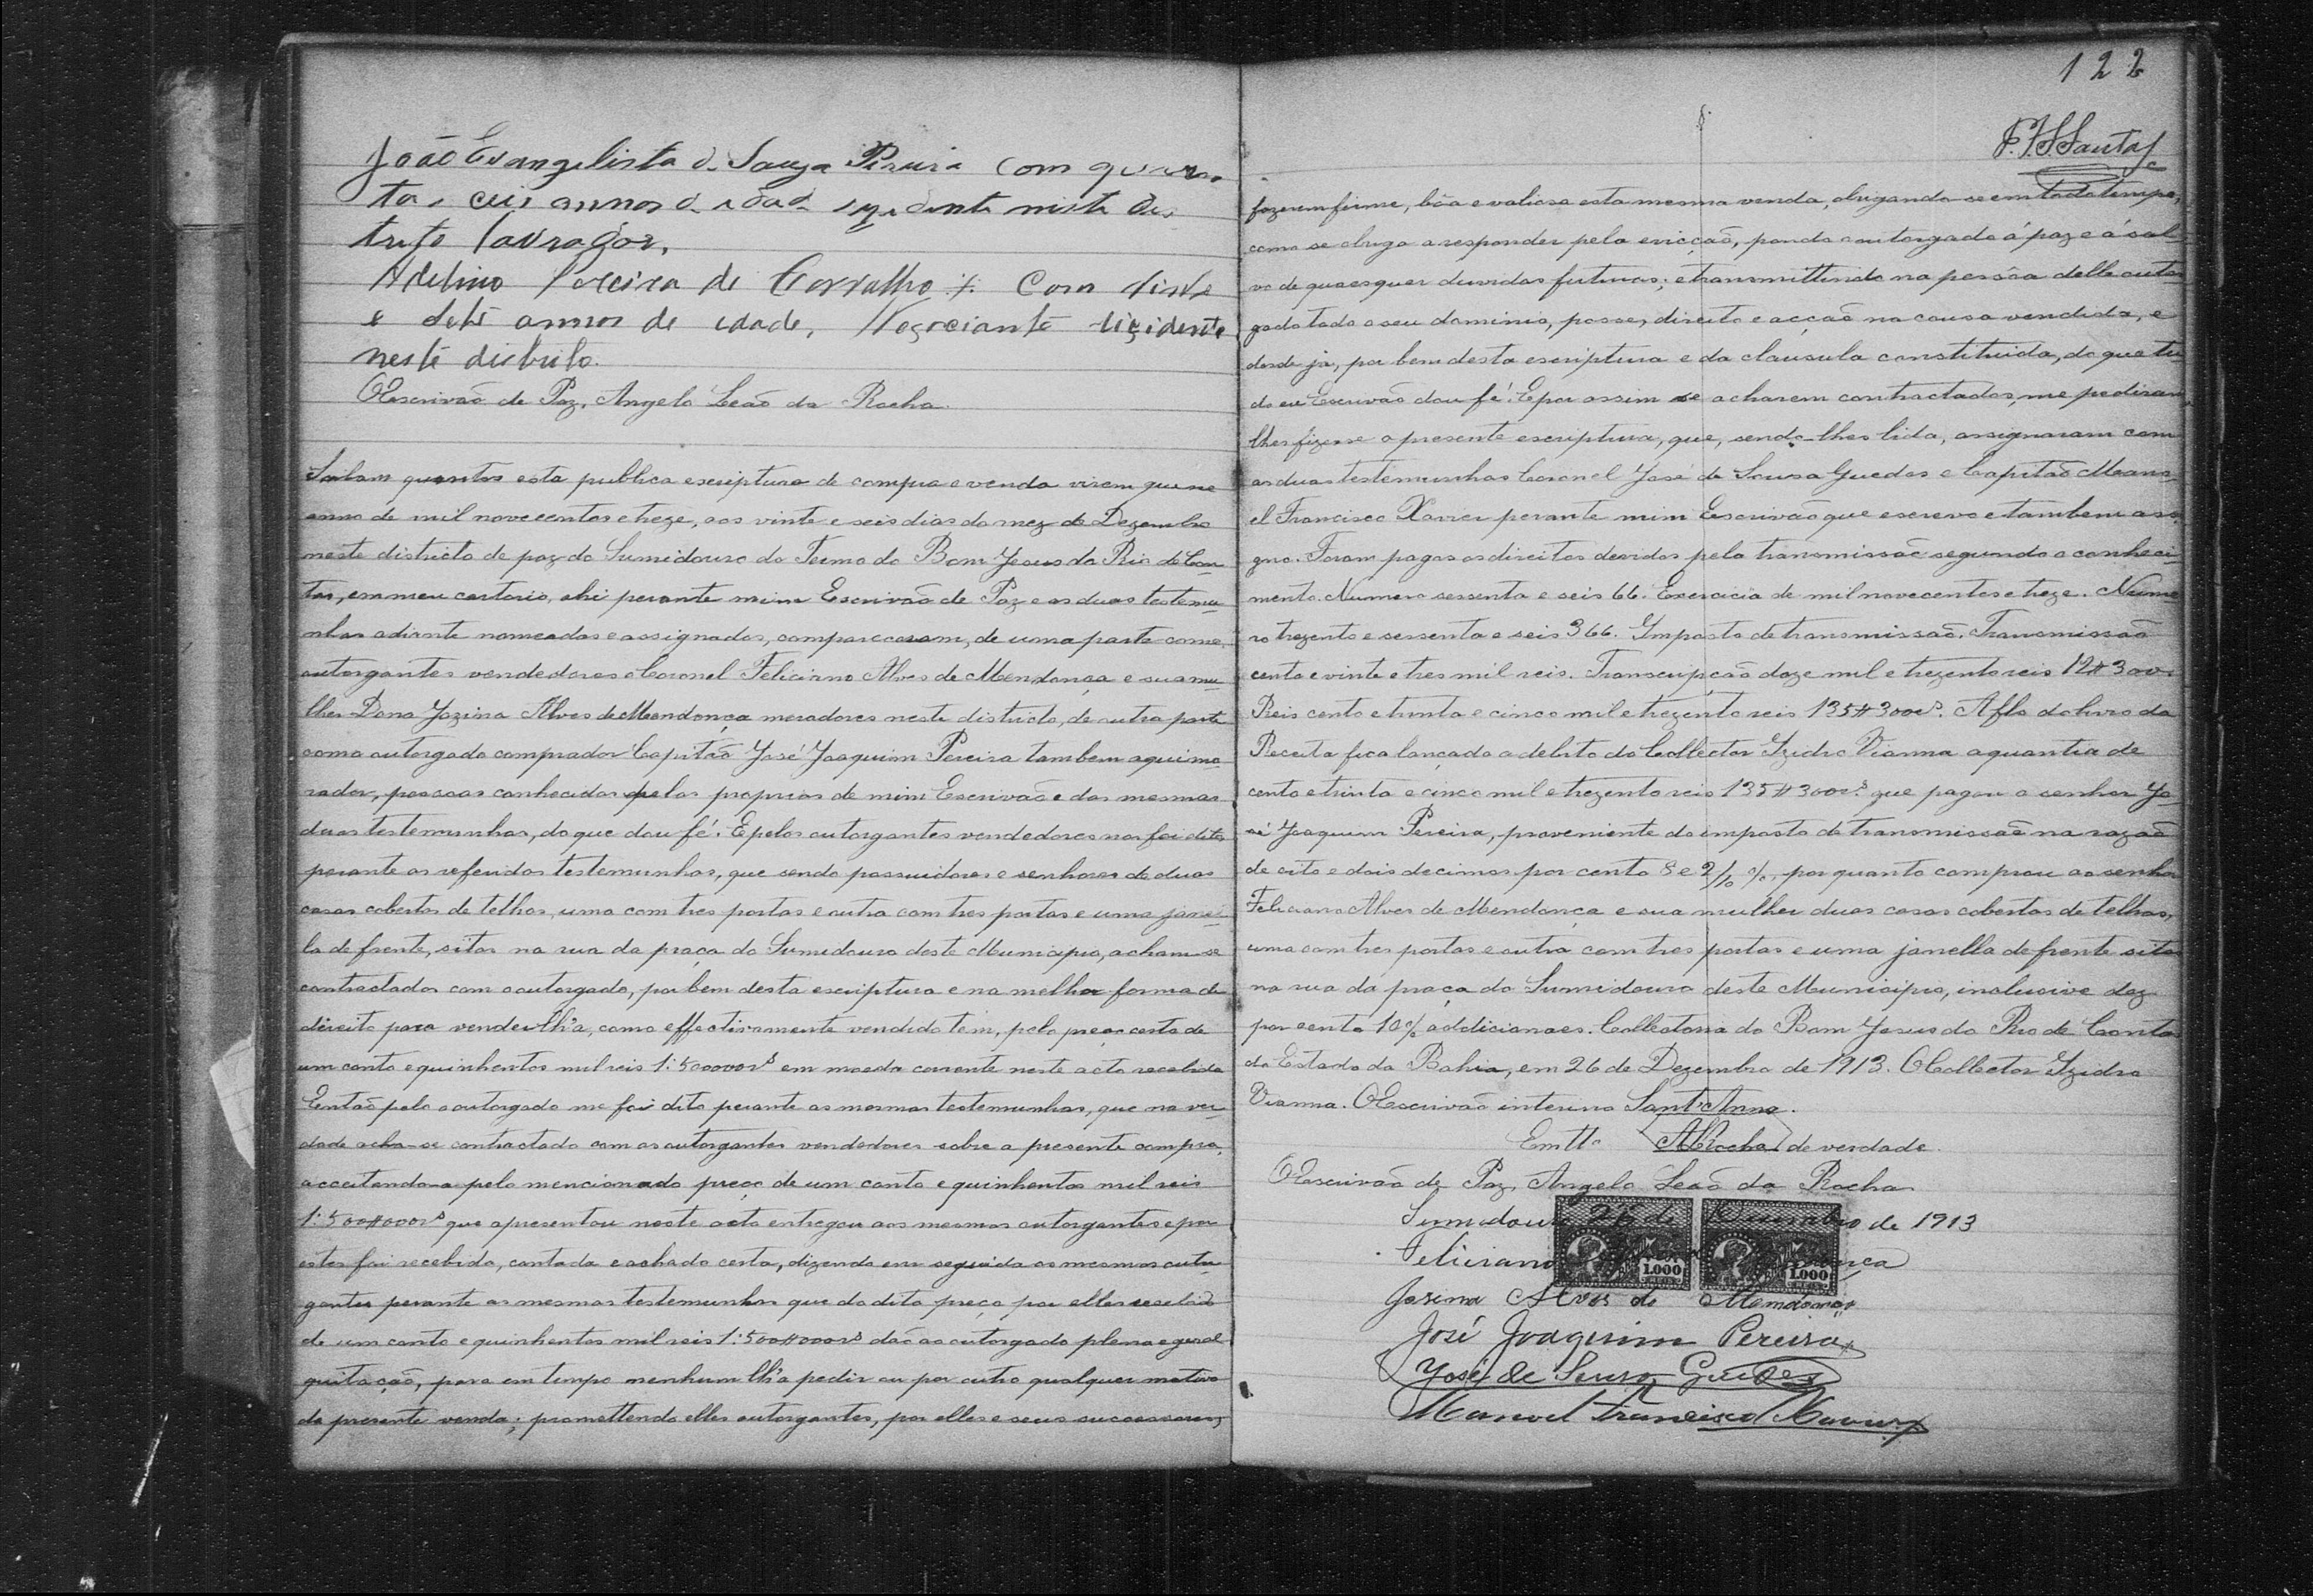 João Evangelista de Souza Pereira com quaren
ta e ceis annos de idade rezidente neste dis
trito lavrador,
Adelino Pereira de Carvalho com vinte
e sete annos de idade, Negociante rizidente
neste districto.
O Escrivão de Paz, Angelo Leão da Rocha.
Saibam quantos esta publica escriptura de compra e venda virem que no
anno de mil novecentos e treze, aos vinte e seis dias do mez de Dezembro
neste districto de paz do Sumidouro do Termo do Bom Jesus do Rio de Con-
tas, em meu cartorio, ahi perante mim Escrivão de Paz e as duas testemu-
nhas adiante nomeadas e assignadas, compareceram, de uma parte como
outorgantes vendedores o Coronel Feliciano Alves de Mendonça e sua mu-
lher Dona Jozina Alves de Mendonça moradores neste districto, de outra parte
como outorgado comprador Capitão José Joaquim Pereira tambem aqui mo-
rador, pessoas conhecidas pelas proprias de mim Escrivão e das mesmas
duas testemunhas, do que dou fé. E pelos outorgantes vendedores nos foi dito
perante as referidas testemunhas, que sendo possuidores e senhores de duas
casas cobertas de telhas, uma com tres portas e outra com tres portas e uma janel-
la de frente, sitas na rua da praça do Sumidouro deste Municipio, acham-se
contractados com o outorgado, por bem desta escriptura e na melhor forma de
direito para vender-lh'a, como effectivamente vendido tem, pelo preço certo de
um conto e quinhentos mil reis 1:500000rs em moeda corrente neste acto recebida
Então pelo o outorgado me foi dito perante as mesmas testemunhas, que na ver-
dade acha-se contractado com os outorgantes vendedores sobre a presente compra,
acceitando-a pelo mencionado preço de um conto e quinhentos mil reis
1:500#000rs que apresentou neste acto entregou aos mesmos outorgantes e por
estes foi recebido, contado e achado certo, dizendo em seguida os mesmos outor-
gantes perante as mesmas testemunhas que do dito preço por elles recebido
de um conto e quinhentos mil reis 1:500#000rs dão ao outorgado plena e geral
quitação, para em tempo nenhum lh'a pedir ou por outro qualquer motivo
da presente venda; promettendo elles outorgantes, por elles e seus successores,
122
fazerem firme, bôa e valiosa esta mesma venda, obrigando-se em todo tempo,
como se obriga a responder pela evicção, pondo o outorgado á paz e á sal-
vo de quaesquer duvidas futuras; e transmittindo na pessôa delle outor-
gado todo o seu dominio, posse, direito e acção na cousa vendida, e
desde já, por bem desta escriptura e da clausula constituida, do que tu-
do eu Escrivão dou fé. E por assim se acharem contractados, me pediram
lhes fizesse a presente escriptura, que, sendo-lhes lida, assignaram com
as duas testemunhas Coronel José de Sousa Guedes e Capitão Mano-
el Francisco Xavier perante mim Escrivão que escrevo e tambem assi-
gno. Foram pagos os direitos devidos pela transmissão segundo o conheci-
mento. Numero sessenta e seis 66. Exercicio de mil novecentos e treze. Nume-
ro trezento e sessenta e seis 366. Imposto de transmissão. Transmissão
cento e vinte e tres mil reis. Transcripção doze mil e trezento reis 12#300.
Reis cento e trinta e cinco mil e trezento reis 135#300rs. A fls do livro da
Receita fica lançado a debito do Collector Izidro Vianna a quantia de
cento e trinta e cinco mil e trezento reis 135#300rs. que pagou o senhor Jo-
sé Joaquim Pereira, proveniente do imposto de transmissão na razão
de oito e dois decimos por cento 8 e 2/10 %, por quanto comprou ao senhor
Feliciano Alves de Mendonça e sua mulher duas casas cobertas de telhas,
uma com tres portas e outra com tres portas e uma janella de frente sita
na rua da praça do Sumidouro deste Municipio, inclusive dez
por cento 10% addicionaes. Collectoria do Bom Jesus do Rio de Conta
do Estado da Bahia, em 26 de Dezembro de 1913. O Collector Izidro
Vianna. O Escrivão interino Sant'Anna.
Em tto ALRocha de verdade.
O Escrivão de Paz, Angelo Leão da Rocha
Sumidouro 26 de Dezembro de 1913
Feliciano Mendonça
1.000
REIS
1.000
REIS
Jozina Alves de Mendonça
José Joaquim Pereira
José de Sousa Guedes
Manoel Francisco Xavier